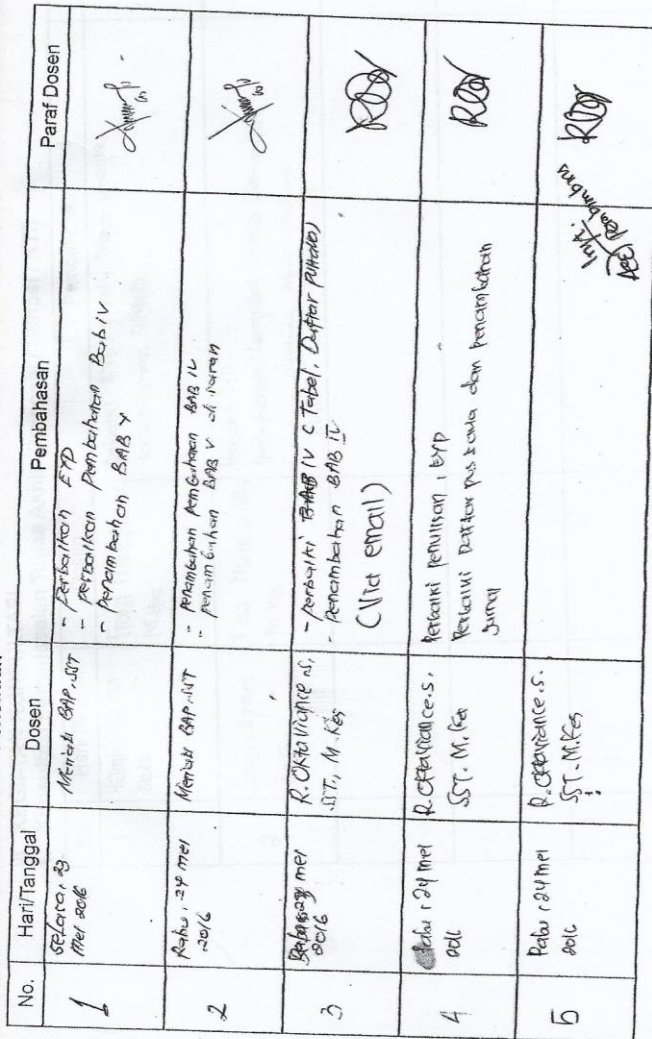 No. Hari/Tanggal Dosen Pembahasan Paraf Dosen
1 Selasa, 23 Mei 2016
Meriati BAP.SST
- perbaikan EYD
- perbaikan pembahasan Bab IV
- penambahan BAB V
2 Rabu, 24 Mei 2016
Meriati BAP.SST
- penambahan pembahasan BAB IV
- penambahan BAB V di saran
3 2016
R. Oktaviance S, SST, M.Kes
- perbaiki BAB IV (Tabel, Daftar Pustaka)
- penambahan BAB IV
(Via email)
4 Rabu, 24 mei 2016
R. Oktaviance.S. SST. M.Kes
Perbaiki penulisan, EYD
Perbaiki Daftar pustaka dan penambahan
Jurnal
5 Rabu, 24 mei 2016
R. Oktaviance.S. SST. M.Kes
ACC Pembimbing